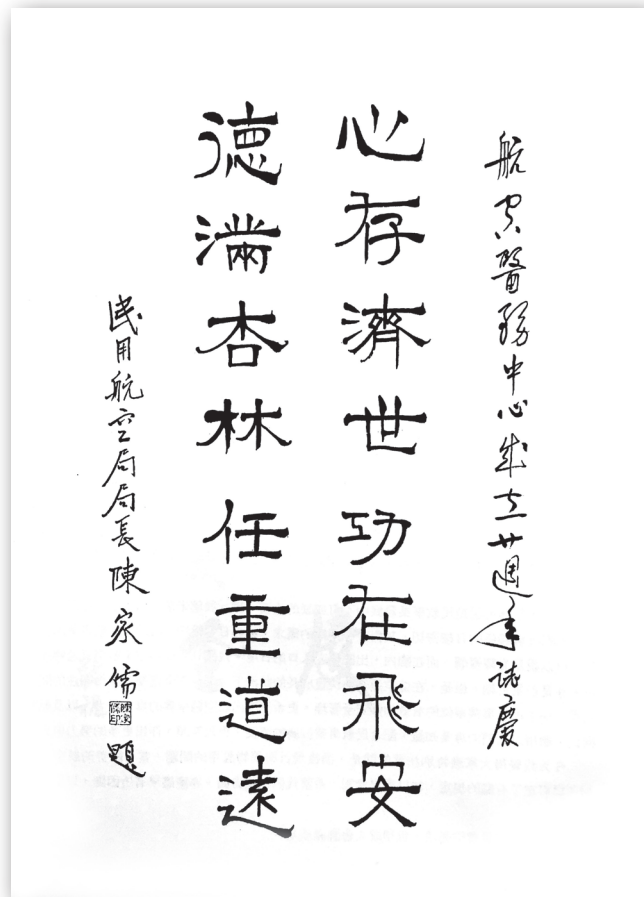 航空醫務中心成立廿週年誌慶
心存濟世功在飛安
德滿杏林任重道遠
民用航空局局長陳家儒題